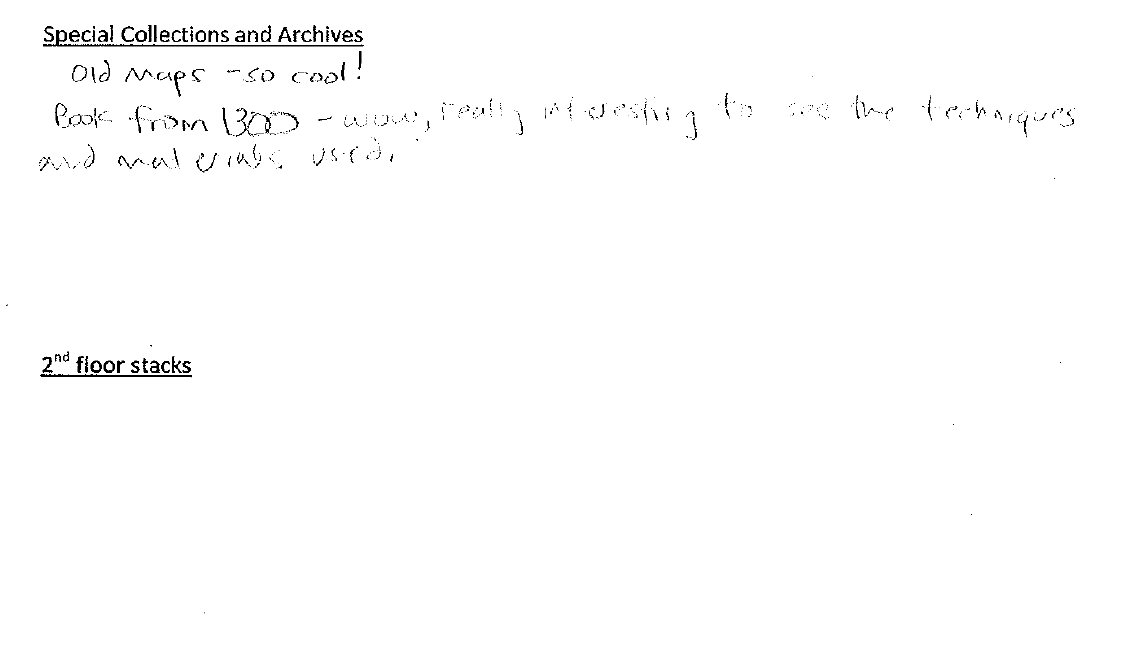 Special Collections and Archives
Old Maps - so cool!
Book from 1300 - wow, really interesting to see the techniques
and materials used.
2nd floor stacks